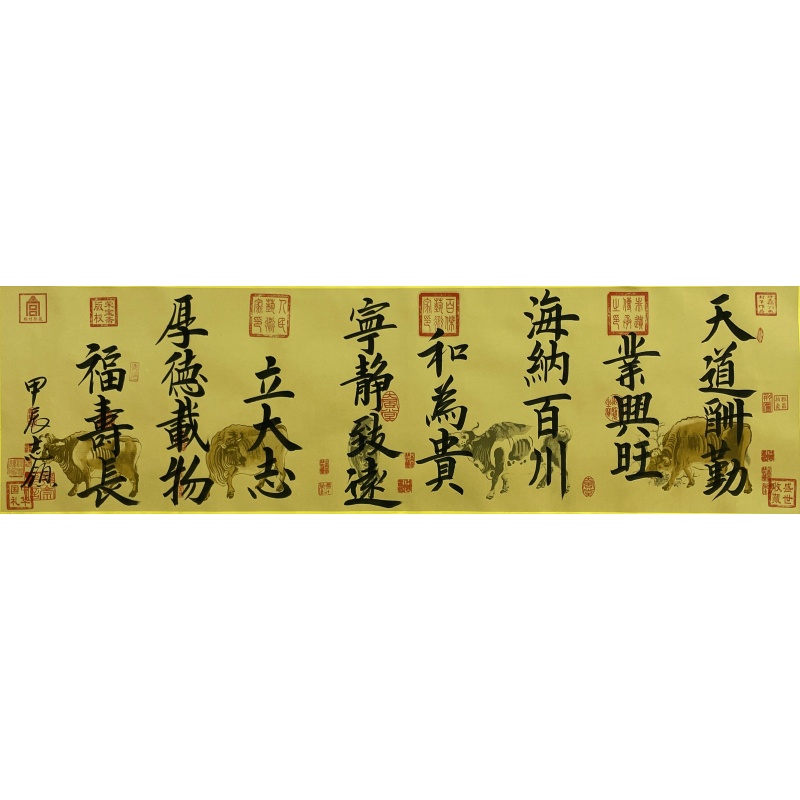 天道酬勤
業興旺
海納百川
和為貴
寧静致遠
立大志
厚德載物
福壽長
甲辰志强
盛世收藏